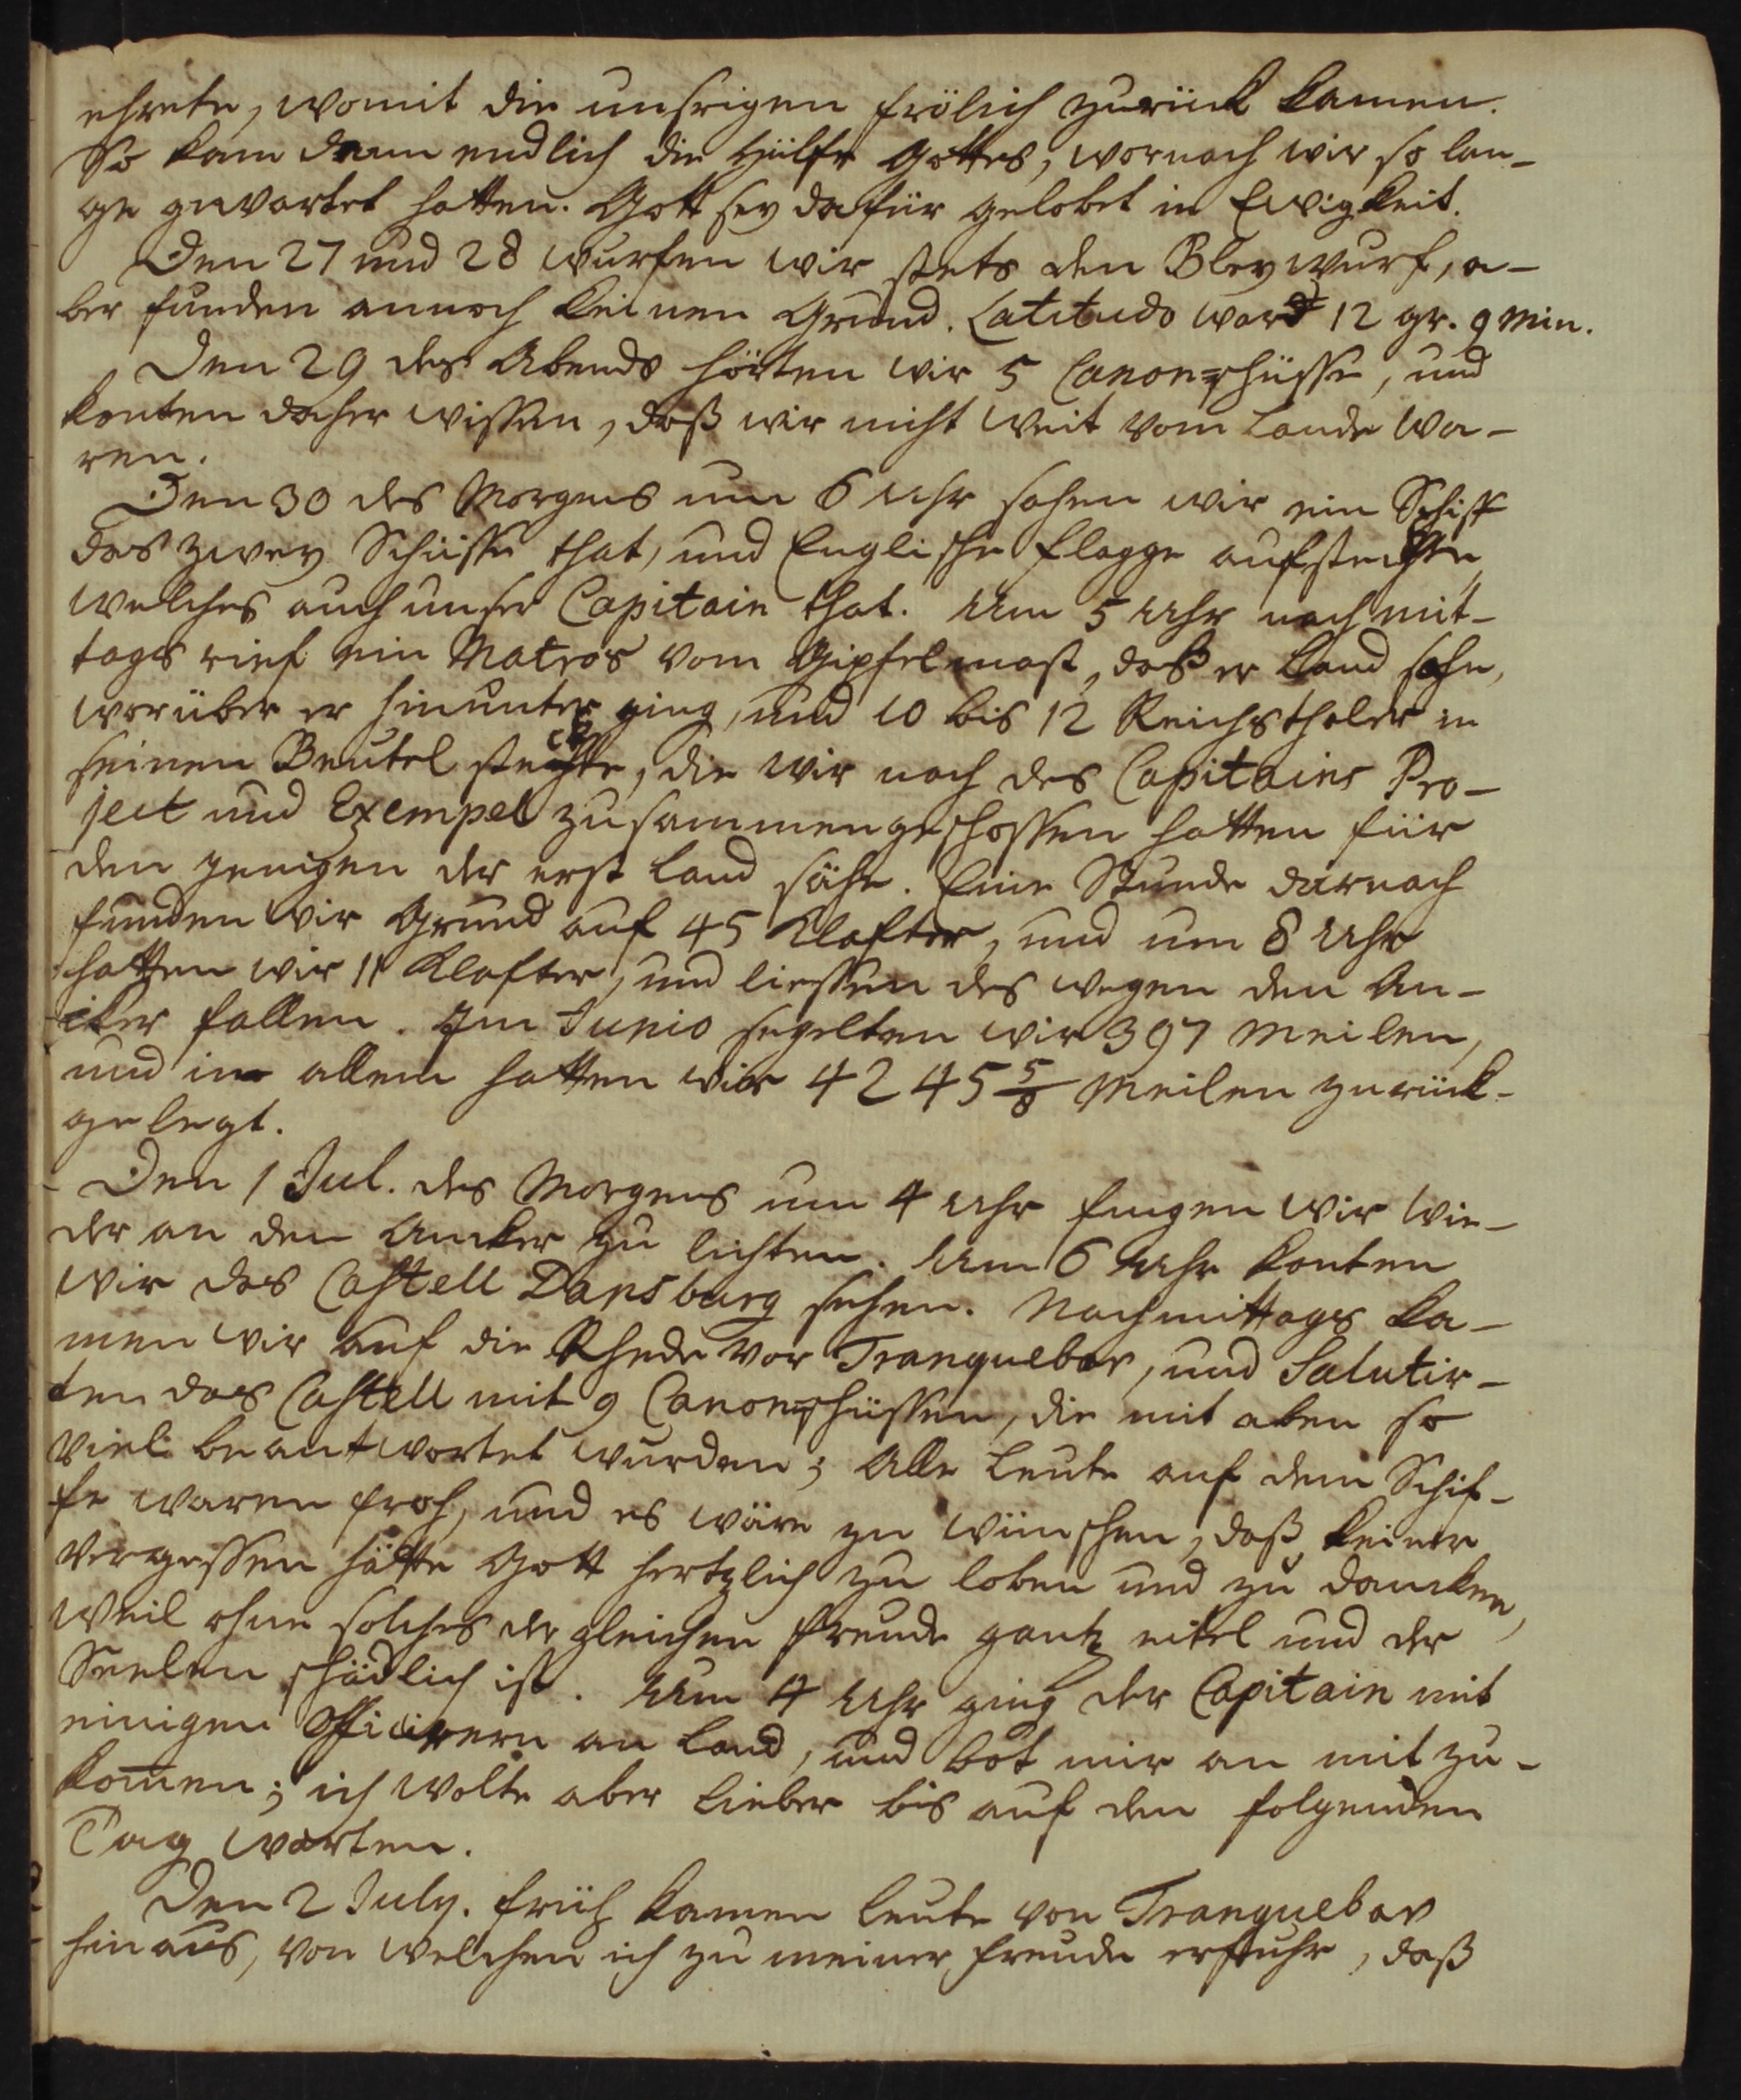 ehrete, womit die unsrigen frölich zurück kamen.
So kam dann endlich die Hülfe Gottes, wornach wir so lan-
ge gewartet hatten. Gott sey dafür gelobet in Ewigkeit.
Den 27 und 28 wurfen wir stets den Bleywurf, a-
ber funden annoch keinen Grund. Latitudo ward 12 gr. 9 Min.
Den 29 des Abends hörten wir 5 Canonschüsse, und
konten daher wissen, daß wir nicht weit vom Lande wa-
ren.
Den 30 des Morgens um 6 Uhr sahen wir ein Schiff
das zwey Schüsse that, und Englische Flagge aufsteckte,
welches auch unser Capitain that. Um 5 Uhr nachmit-
tags rief ein Matros vom Gipfelmast, daß er Land sehe,
worüber er hinunter ging, und 10 bis 12 Reichsthaler in
seinen Beutel steckte, die wir nach des Capitains Pro-
ject und Exempel zusammengeschossen hatten für
den jenigen der erst Land sähe. Eine Stunde darnach
funden wir Grund auf 45 Klafter, und um 8 Uhr
hatten wir 11 Klafter, und liessen des wegen den An-
cker fallen. Im Junio segelten wir 397 Meilen,
und in allem hatten wir 4245 5/8 Meilen zurück-
gelegt.
Den 1 Jul. des Morgens um 4 Uhr fingen wir wie-
der an den Ancker zu lichten. Um 6 Uhr konten
wir das Castell Dansburg sehen. Nachmittags ka-
men wir auf die Rhede vor Tranquebar, und Salutir-
ten das Castell mit 9 Canonschüssen, die mit eben so
viel beantwortet wurden; Alle Leute auf dem Schif-
fe waren froh, und es wäre zu wünschen, daß keiner
vergessen hätte Gott hertzlich zu loben und zu dancken,
weil ohne solches der gleichen Freude gantz eitel und der
Seelen schädlich ist. Um 4 Uhr ging der Capitain mit
einigen Officirern an Land, und bot mir an mit zu-
kom̄en; ich wolte aber lieber bis auf den folgenden
Tag warten.
Den 2 July. früh kamen Leute von Tranquebar
hinaus, von welchen ich zu meiner Freude erfuhr, daß